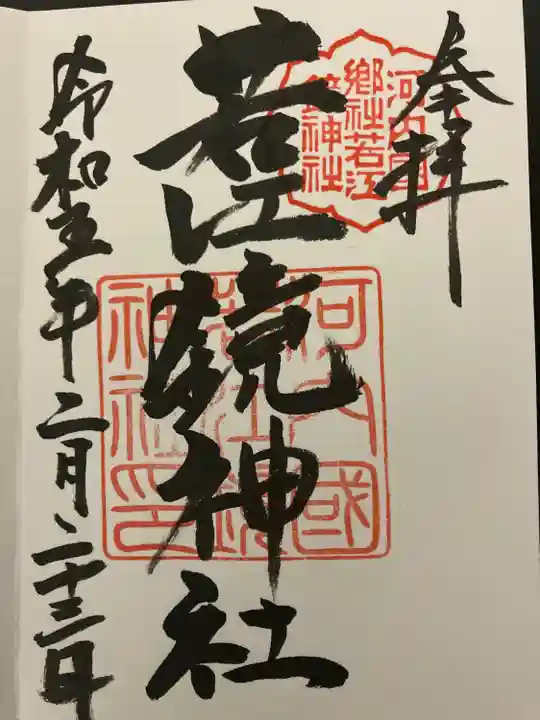 奉拝
河内国
郷社若江
鏡神社
若江鏡神社
河内國
若江鏡
神社印
令和五年二月二十三日